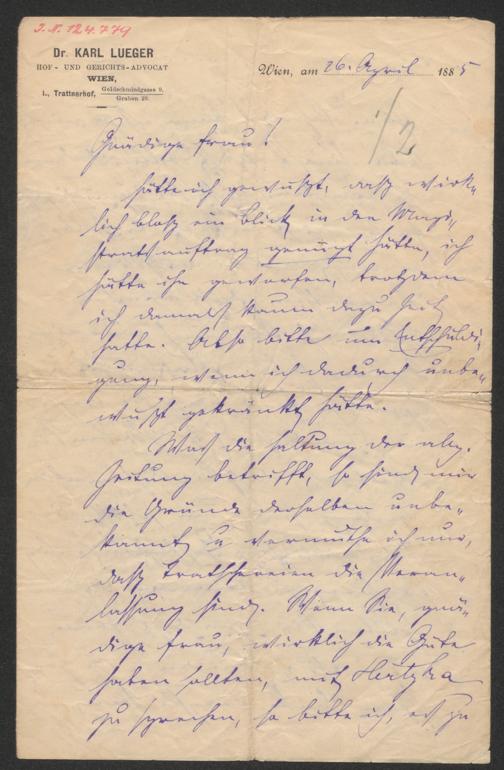 J.N. 124.779
Dr. KARL LUEGER
HOF- UND GERICHTS-ADVOCAT
WIEN,
I., Trattnerhof, Goldschmiedgasse 9.
Graben 29.
Wien, am 26. April 1885
1/2
Gnädige Frau!
Hätte ich gewußt, daß wirk„
lich bloß ein Blick in den Magi„
stratsauftrag genügt hätte, ich
hätte ihn geworfen, trotzdem
ich damals kaum dazu Zeit
hatte. Also bitte um Entschuldi„
gung, wenn ich dadurch unbe„
wußt gekränkt hätte.
Was die Haltung der allg.
Zeitung betrifft, so sind mir
die Gründe derselben unbe„
kannt u vermuthe ich nur,
daß Tratschereien die Veran„
lassung sind. Wenn Sie, gnä„
dige Frau, wirklich die Güte
haben sollten, mit Hertzka
zu sprechen, so bitte ich, es zu